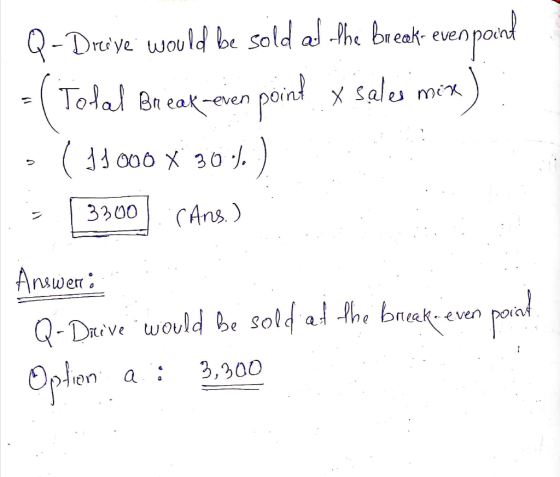 Q-Drive would be sold at the break-even point
= (Total Break-even point x sales mix)
= (11000 x 30%)
= 3300 (Ans.)
Answer:
Q-Drive would be sold at the break-even point
Option a : 3,300